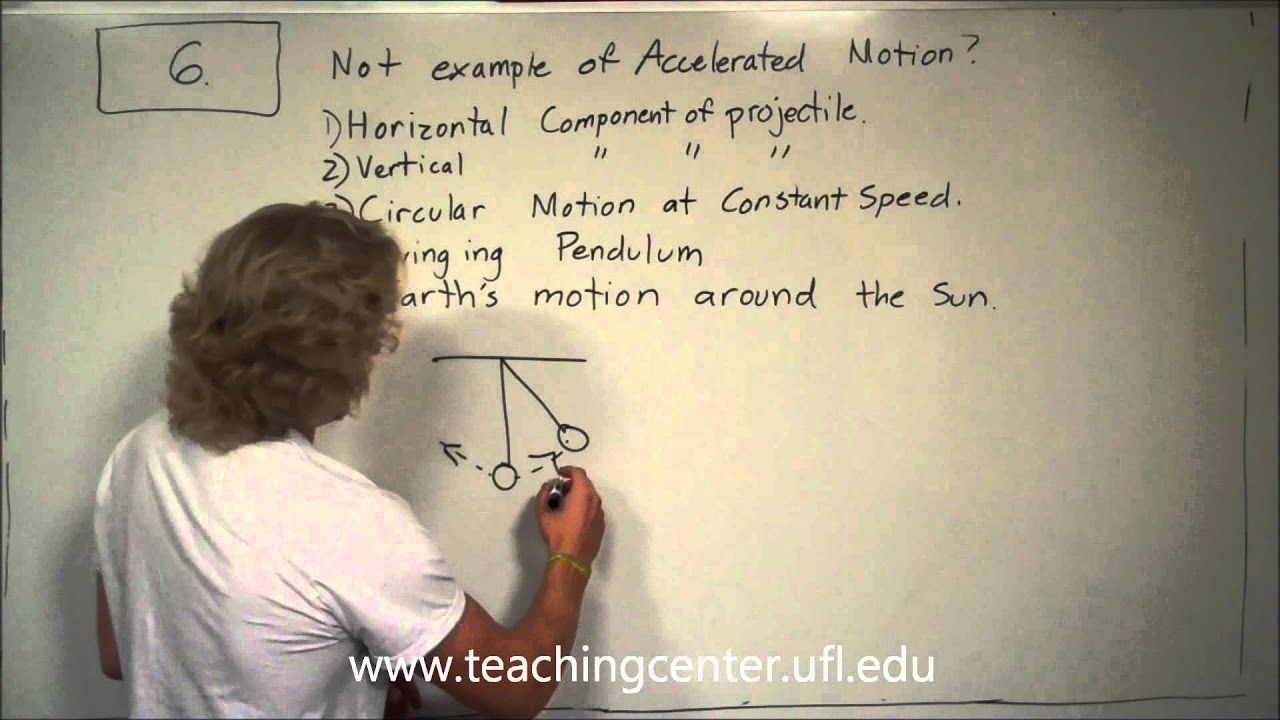 6.
Not example of Accelerated Motion?
1) Horizontal Component of projectile.
2) Vertical " " "
Circular Motion at Constant Speed.
ing ing Pendulum
arth's motion around the Sun.
www.teachingcenter.ufl.edu